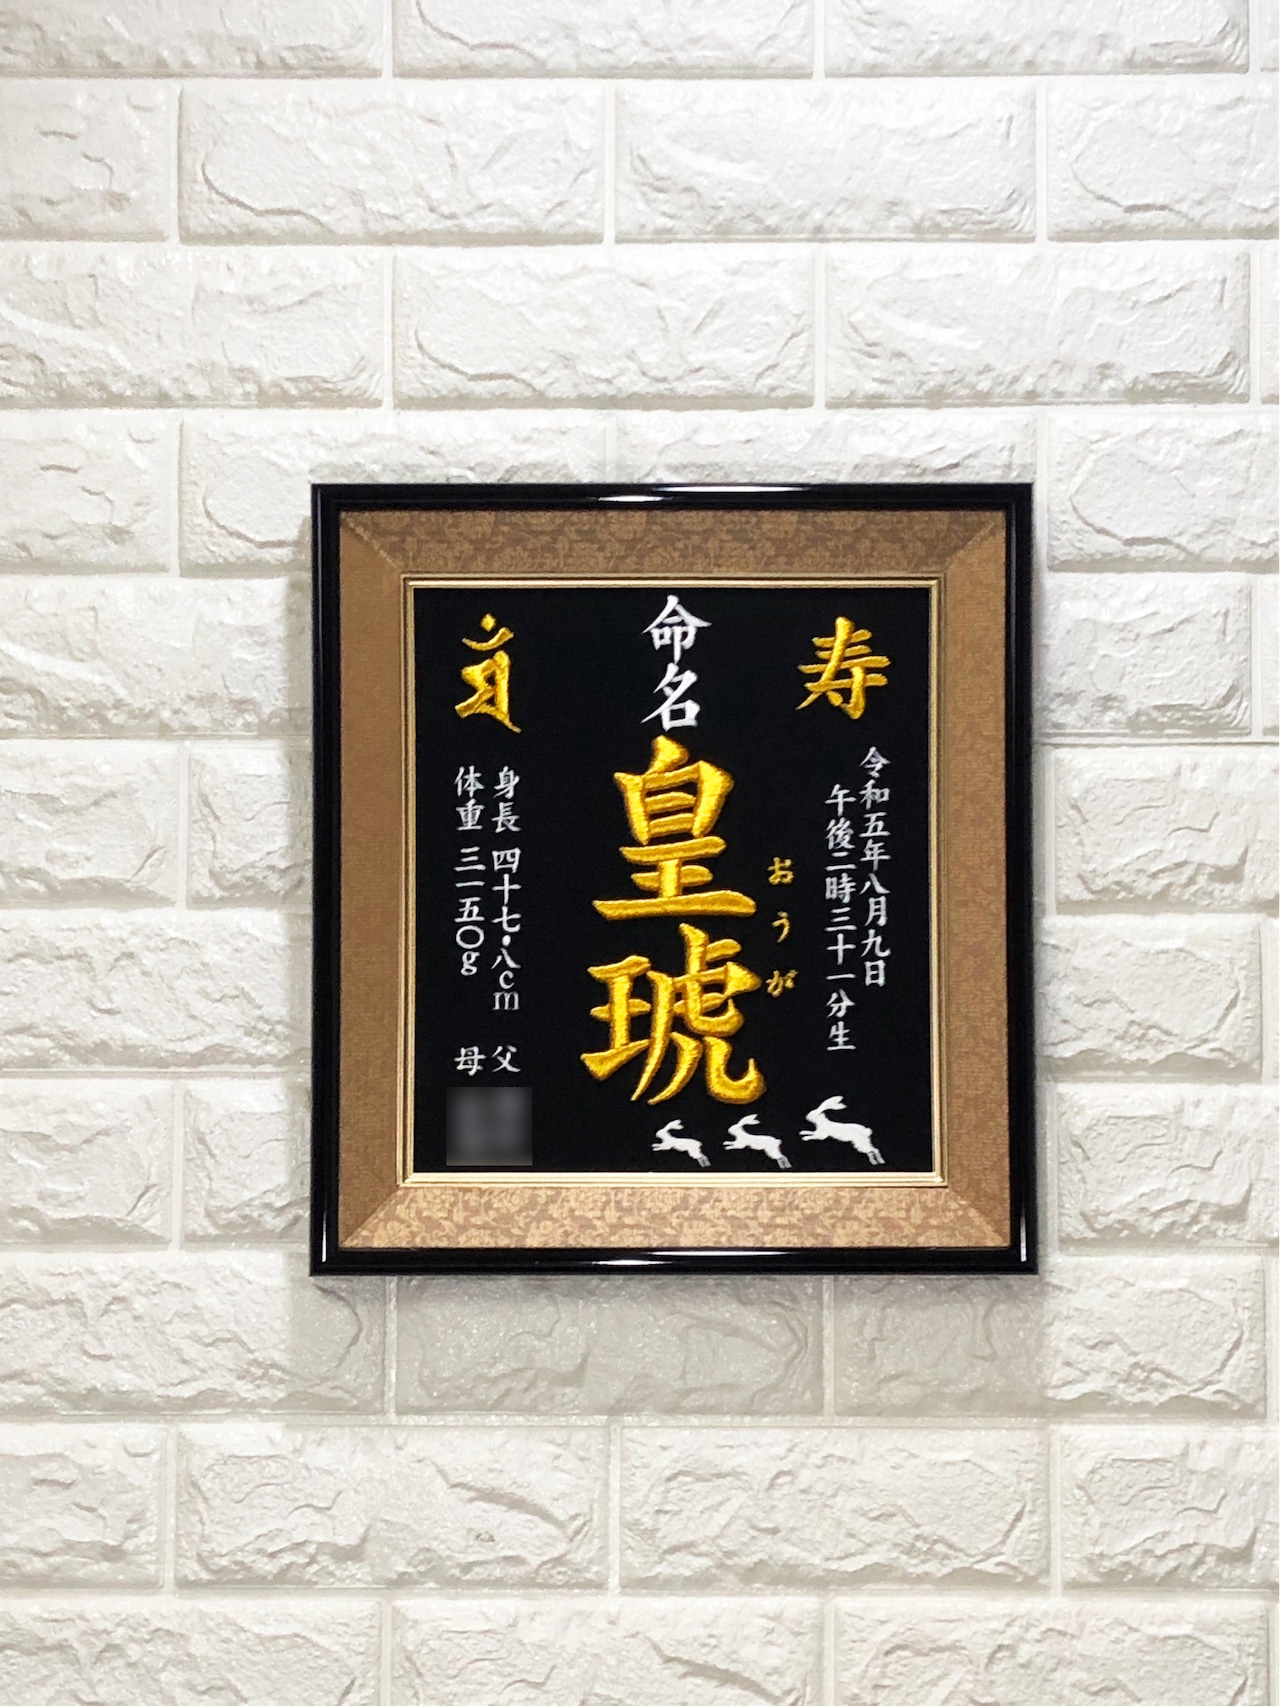 寿
令和五年八月九日
午後二時三十一分生
命名
皇琥
おうが
身長 四十七・八cm
体重 三一五〇g
父
母